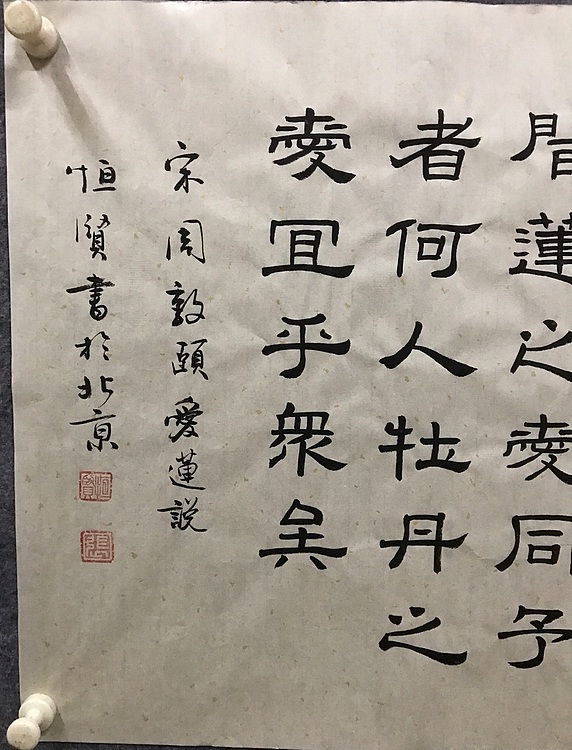 聞蓮之愛同予
者何人牡丹之
愛宜乎衆矣
宋周敦頤愛蓮說
恒賢書於北京
恒賢
張